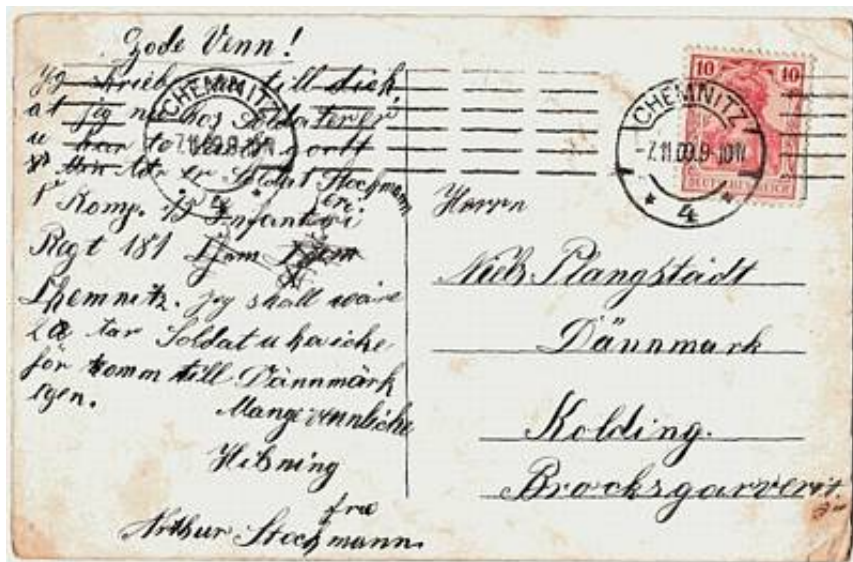 Gode Venn!
till dich
at jeg nu hos Soldater er
u har
Min er Soldat Stochmann
Komp. 15 Infanteri
Regt 181
Chemnitz. jeg skall wäre
2 a tar Soldat u ka icke
för komm till Dännmark
igen.
Mange vennlicke
Hilsning
fra
Arthur Stochmann.
CHEMNITZ
7.11.09.9-10V.
4
CHEMNITZ
-7.11.09.9-10V.
* 4 *
10 10
DEUTSCHES REICH
Herrn
Niels Plangstädt
Dännmark
Kolding.